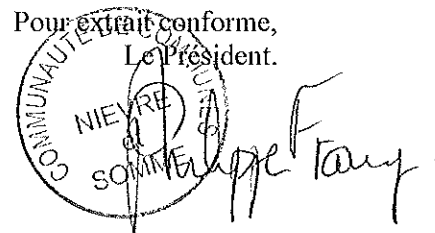 Pour extrait conforme,
Le Président.
COMMUNAUTE DE COMMUNES
NIEVRE
et
SOMME
Philippe